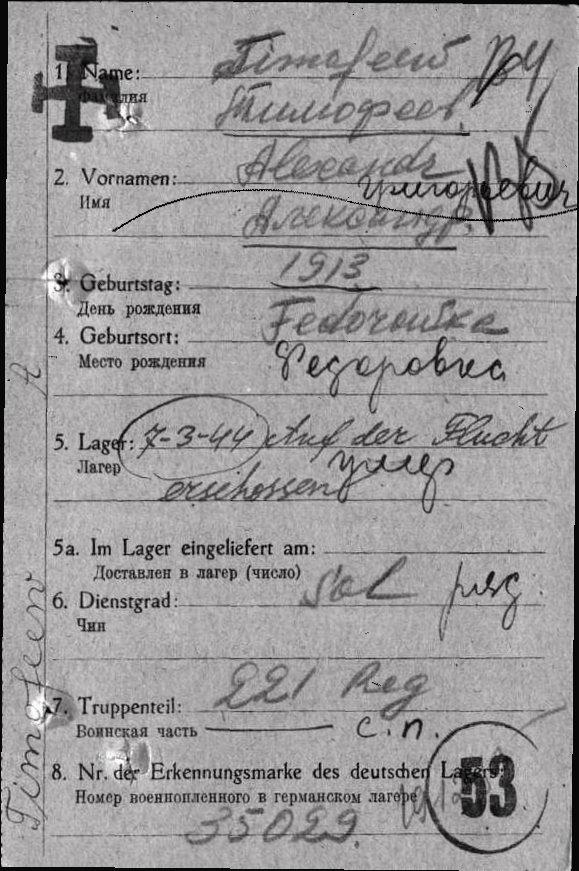 1. Name: Timofeew
Фамилия Тимофеев
2. Vornamen: Alexandr
Имя Григорьевич
Александр.
3. Geburtstag: 1913
День рождения
4. Geburtsort: Fedorowka
Место рождения Федоровка
5. Lager: 7-3-44 Auf der Flucht
Лагерь умер
erschossen
5a. Im Lager eingeliefert am:
Доставлен в лагерь (число)
6. Dienstgrad: Sol ряд
Чин
7. Truppenteil: 221 Reg
Воинская часть с.п.
8. Nr. der Erkennungsmarke des deutschen Lagers:
Номер военнопленного в германском лагере
35029
53
Timofeew A